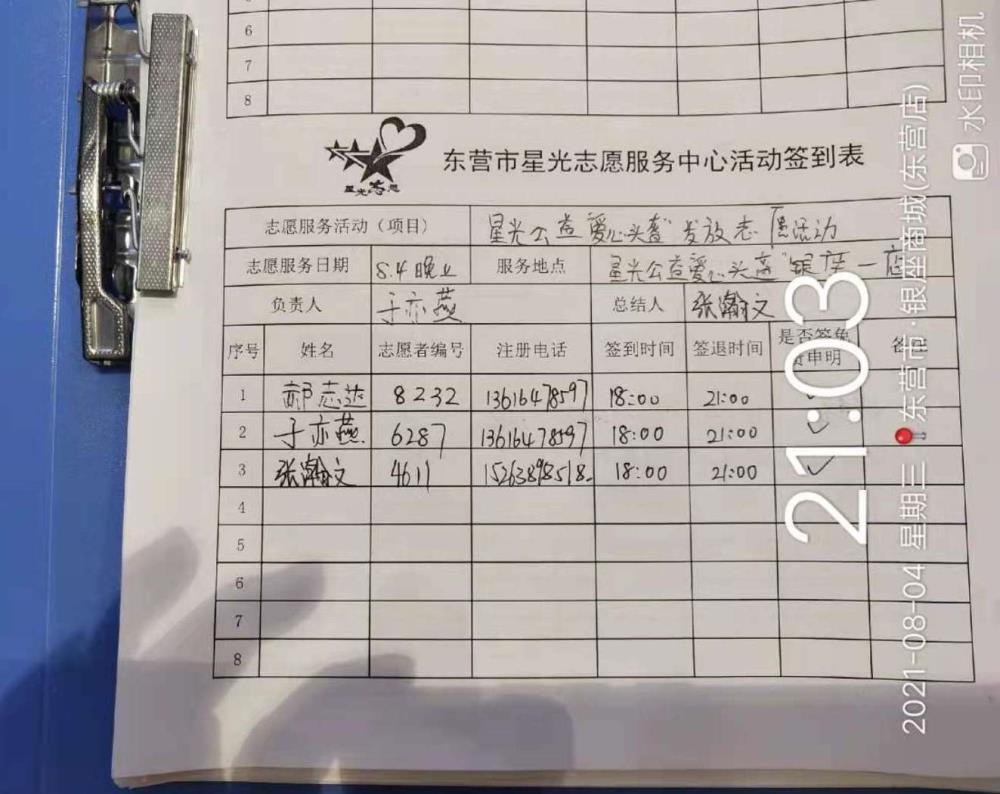 6
7
8
星光志愿
东营市星光志愿服务中心活动签到表
志愿服务活动（项目） 星光公益"爱心头盔"发放志愿活动
志愿服务日期 8.4晚上 服务地点 星光公益爱心头盔"银座一店
负责人 于亦燕 总结人 张瀚文
序号 姓名 志愿者编号 注册电话 签到时间 签退时间 是否签免责申明
1 郝志达 8232 13616478597 18:00 21:00 ✓
2 于亦燕 6287 13616478597 18:00 21:00 ✓
3 张瀚文 4611 18:00 21:00 ✓
4
5
6
7
8
21:03
2021-08-04 星期三 东营市·银座商城(东营店)
水印相机